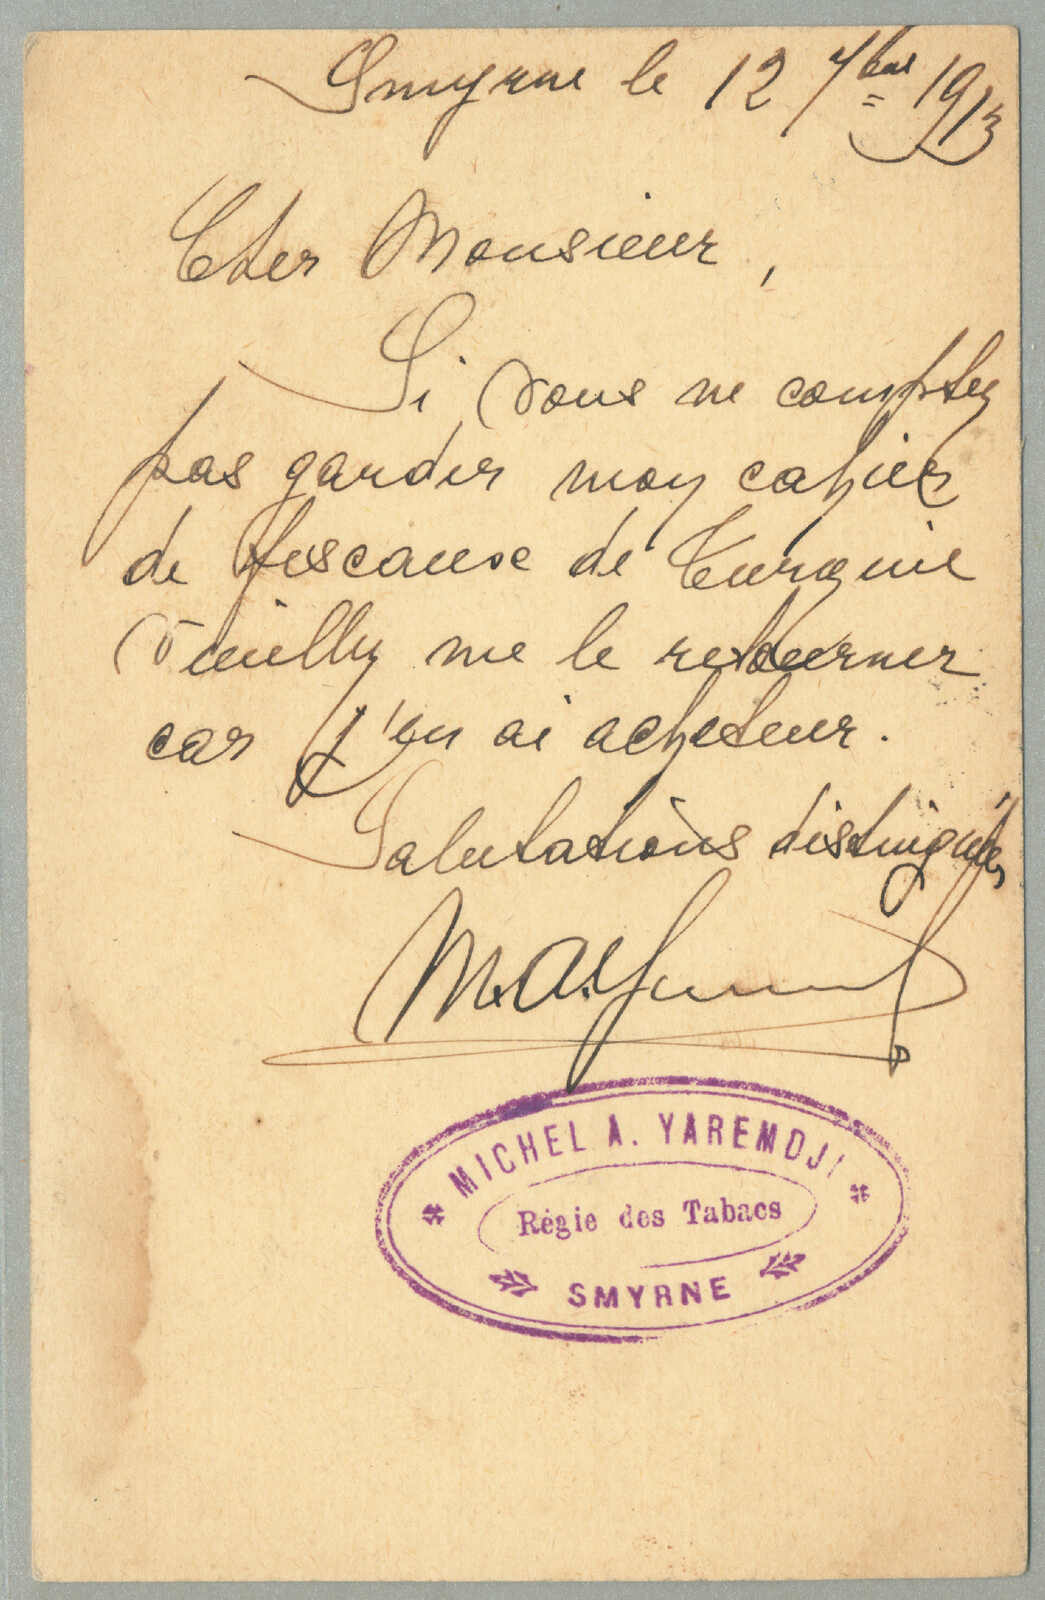 Smyrne le 12 7bre 1913
Cher Monsieur,
Si vous ne comptez
pas garder mon cahier
de fiscaux de Turquie
veuillez me le retourner
car j'en ai acheteur.
Salutations distinguées
M. A.
MICHEL A. YAREMDJI
Régie des Tabacs
SMYRNE